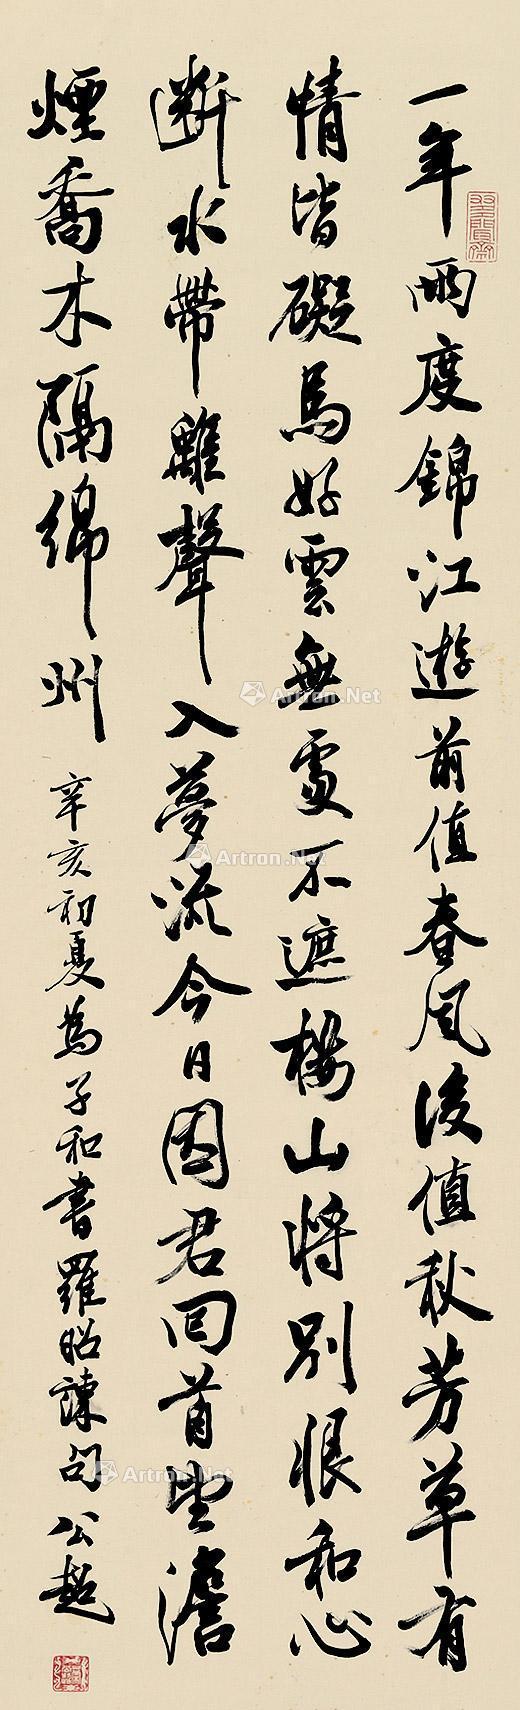 一年兩度錦江遊前值春風後值秋芳草有
情皆礙馬好雲無處不遮樓山將別恨和心
斷水帶離聲入夢流今日因君回首望澹
煙喬木隔綿州
辛亥初夏為子和書羅昭諫句 公超
Artron.Net
Artron.Net
Artron.Net
Artron.Net